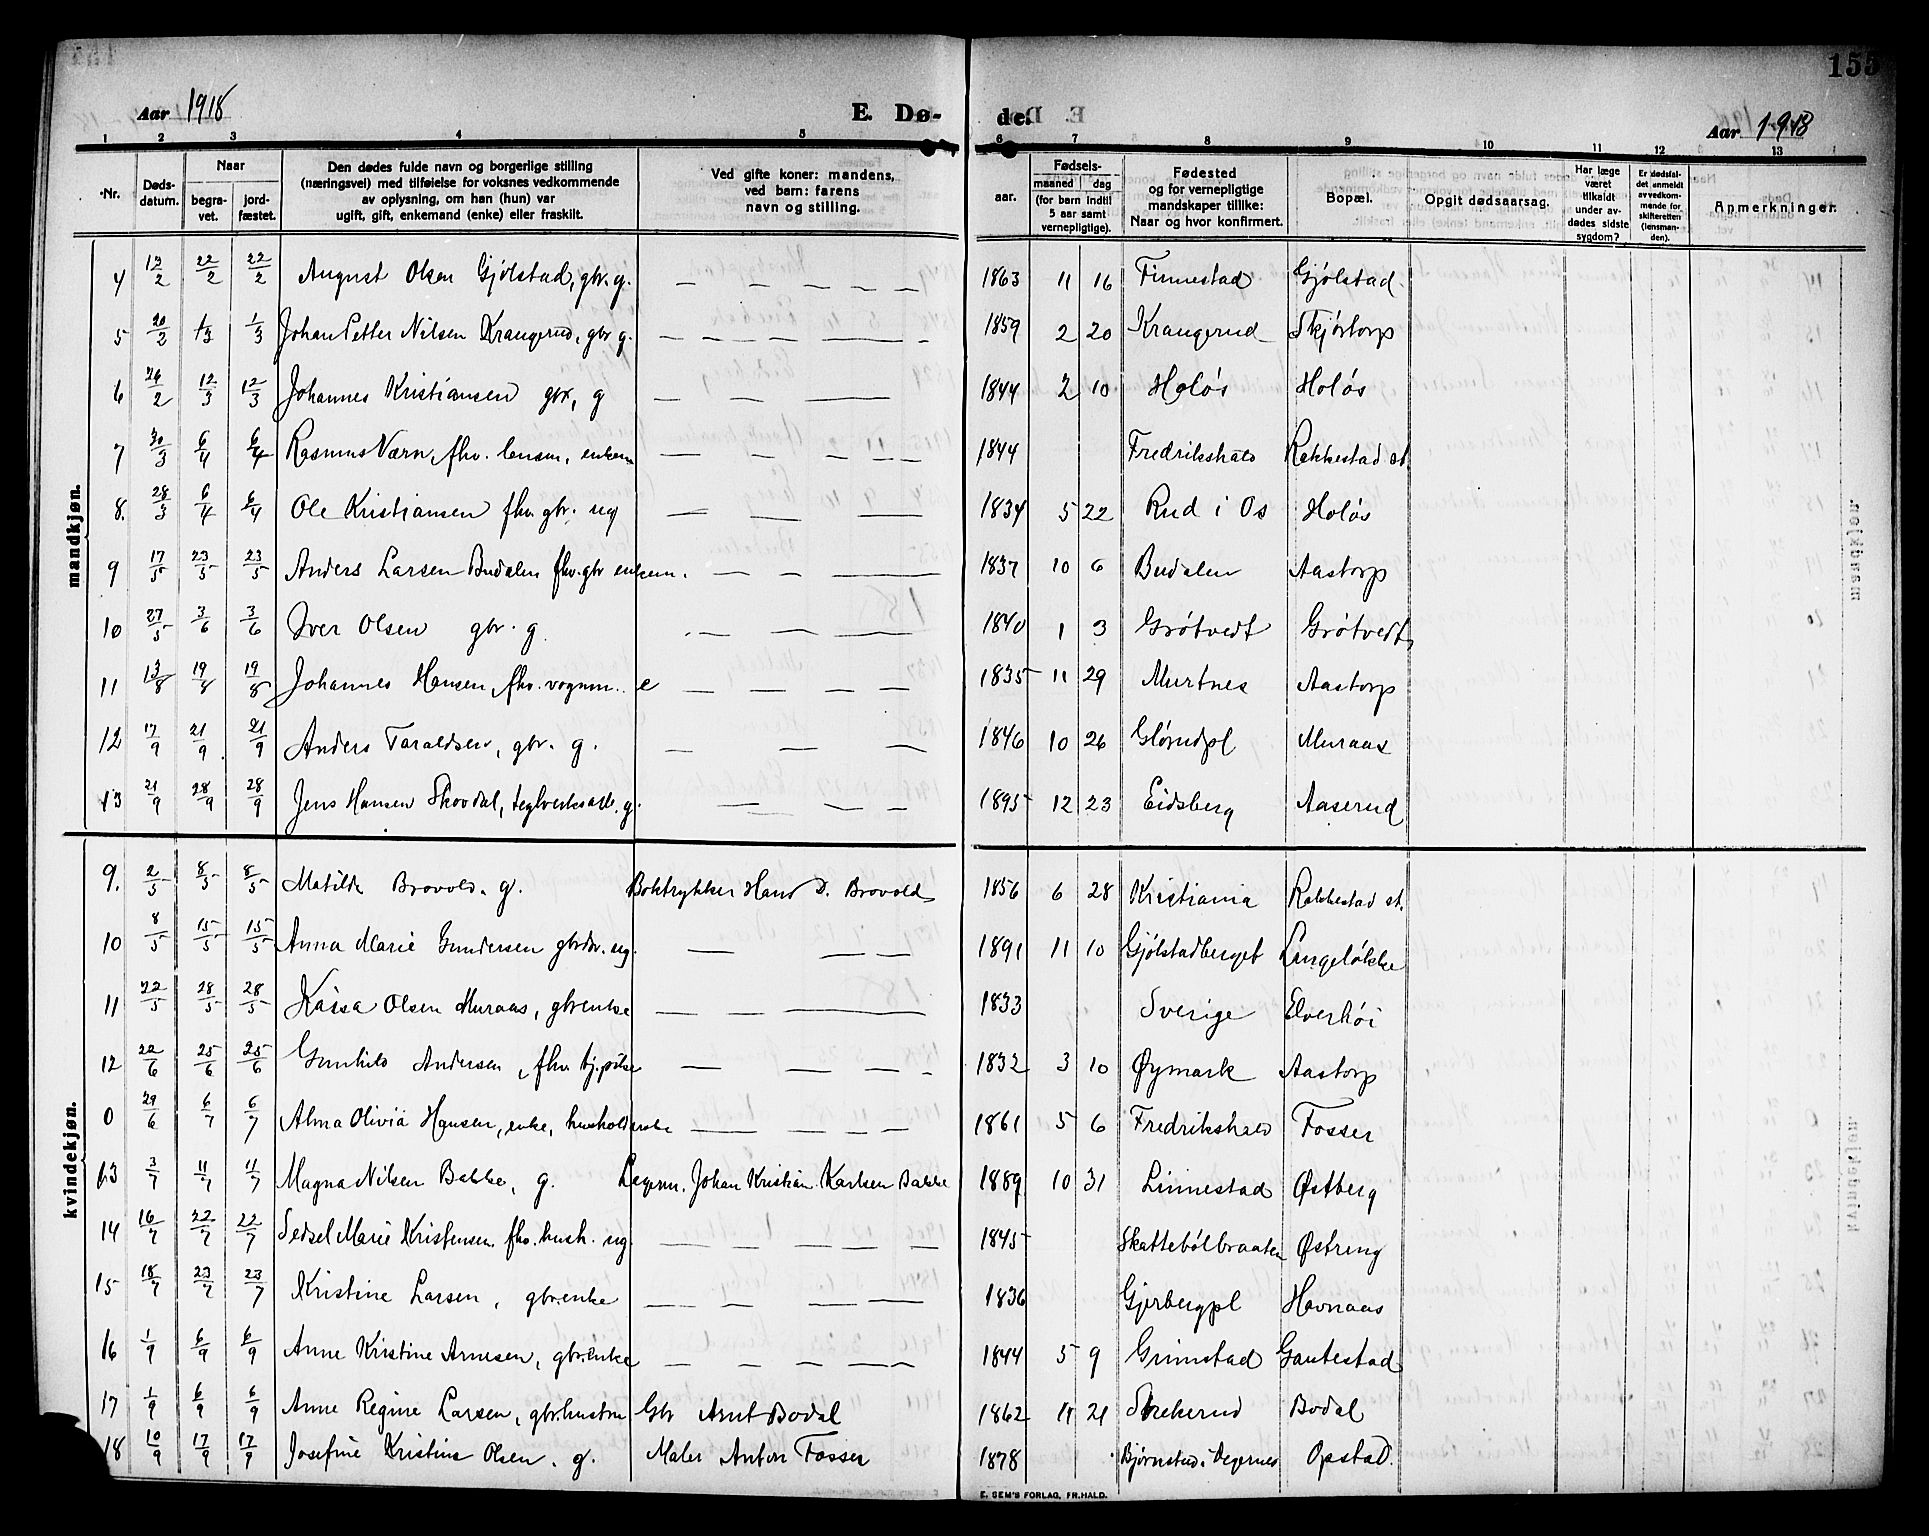 155
Aar 1918
E. Dø-
de.
Aar 1918
1 2 3 4 5 6 7 8 9 10 11 12 13
Nr.
Døds-
datum.
Naar
begra-
vet.
jord-
fæstet.
Den dødes fulde navn og borgerlige stilling
(næringsvei) med tilføielse for voksnes vedkommende
av oplysning, om han (hun) var
ugift, gift, enkemand (enke) eller fraskilt.
Ved gifte koner: mandens,
ved barn: farens
navn og stilling.
aar.
Fødsels-
maaned dag
(for barn indtil
5 aar samt
vernepligtige).
Fødested
og for vernepligtige
mandskaper tillike:
Naar og hvor konfirmert.
Bopæl.
Opgit dødsaarsag.
Har læge
været
tilkaldt
under av-
dødes sidste
sygdom?
Er dødsfal-
det anmeldt
av vedkom-
mende for
skifteretten
(lensman-
den).
Anmerkninger.
mandkjøn.
4 13/2 22/2 22/2 August Olsen Gjølstad, gbr. g. — — — — — 1863 11 16 Finnestad Gjølstad
5 20/2 1/3 1/3 Johan Petter Nilsen Krangerud, gbr g. — — — — — 1859 2 20 Krangerud Skjørtorp
6 26/2 12/3 12/3 Johannes Kristiansen gbr, g — — — 1844 2 10 Holøs Holøs
7 30/3 6/4 6/4 Rasmus Værn, fhv. lensm, enkem — — — — 1844 Fredrikshald Rakkestad st.
8. 28/3 6/4 6/4 Ole Kristiansen fhv. gbr. ug — — — 1834 5 22 Rud i Os Holøs
9 17/5 23/5 23/5 Anders Larsen Budalen fhv. gbr enkem. — — — 1837 10 6 Budalen Aastorp
10 27/5 3/6 3/6 Iver Olsen gbr. g. — — — 1840 1 3 Grøtvedt Grøtvedt
11 13/8 19/8 19/8 Johannes Hansen, fhv. vognm. e — — — — 1835 11 29 Murtnes Aastorp
12 17/9 21/9 21/9 Anders Taraldsen, gbr. g. — — — 1846 10 26 Glørudpl Muraas
13 21/9 28/9 28/9 Jens Hansen Skovdal, teglverksarb. g. — — — 1895 12 23 Eidsberg Aaserud
kvindekjøn.
9. 2/5 8/5 8/5 Matilde Brovold. g. Boktrykker Hans D. Brovold 1856 6 28 Kristiania Rakkestad st.
10 8/5 15/5 15/5 Anna Marie Gundersen gbrdtr. ug. — — — 1891 11 10 Gjølstadberget Langeløkke
11 22/5 28/5 28/5 Kaisa Olsen Muraas, gbrenke — — — 1833 Sverige Elverhøi
12 22/6 25/6 25/6 Gunhild Andersen, fhv. tj.pike — — — — 1832 3 10 Øymark Aastorp
0 29/6 6/7 6/7 Alma Olivia Hansen, enke, husholderske — — — — 1861 5 6 Fredrikshald Fosser
13 3/7 11/7 11/7 Magna Nilsen Bakke, g. Lægem. Johan Kristian Karlsen Bakke 1889 10 31 Linnestad Østberg
14 16/7 22/7 22/7 Sedsel Marie Kristensen fhv. hush. ug. — — — — — 1845 Skattebølbraaten Østreng
15 18/7 23/7 23/7 Kristine Larsen, gbr.enke — — — — 1836 Gjerbergpl Havnaas
16 1/9 6/9 6/9 Anne Kristine Arnesen, gbr.enke — — — — 1844 5 9 Grimstad Gautestad
17 1/9 6/9 6/9 Anne Regine Larsen, gbr.hustru Gbr Arnt Bodal 1862 11 21 Bodal
18 10/9 17/9 17/9 Josefine Kristine Olsen. g. Maler Anton Fosser 1878 Bjørnstad i Degernes Opstad.
E. SEM'S FORLAG, FR.HALD.